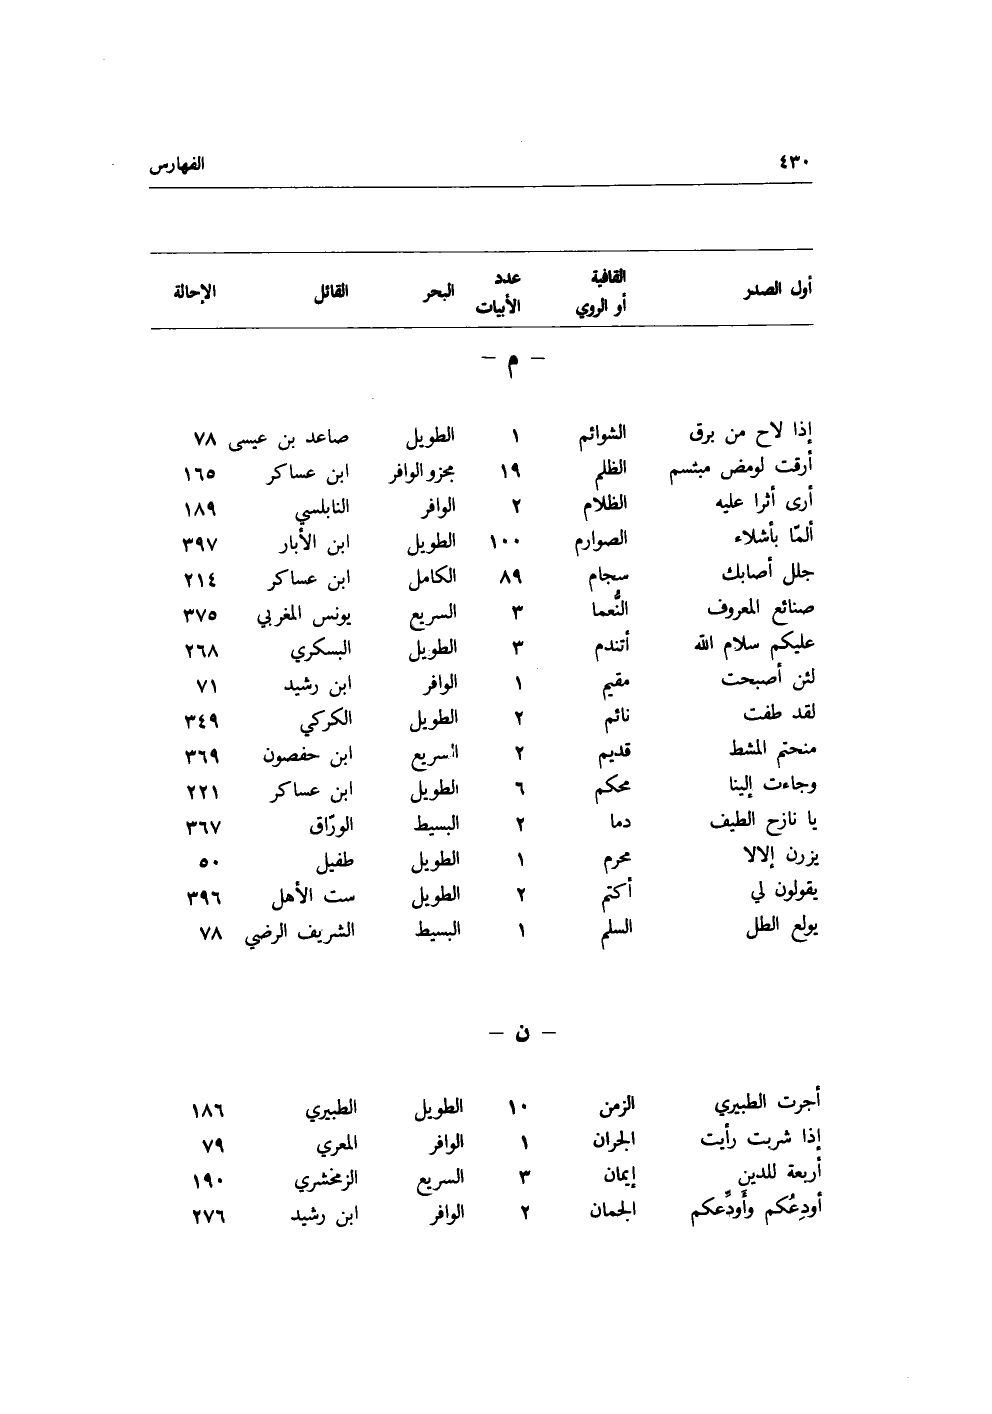 ٤٣٠ الفهارس
أول الصدر القافية أو الروي عدد الأبيات البحر القائل الإحالة
– م –
إذا لاح من برق الشوائم ١ الطويل صاعد بن عيسى ٧٨
أرقت لومض مبتسم الظلم ١٩ مجزو الوافر ابن عساكر ١٦٥
أرى أثرا عليه الظلام ٢ الوافر النابلسي ١٨٩
ألمّا بأشلاء الصوارم ١٠٠ الطويل ابن الأبار ٣٩٧
جلل أصابك سجام ٨٩ الكامل ابن عساكر ٢١٤
صنائع المعروف النُّعما ٣ السريع يونس المغربي ٣٧٥
عليكم سلام الله أتندم ٣ الطويل البسكري ٢٦٨
لئن أصبحت مقيم ١ الوافر ابن رشيد ٧١
لقد طفت نائم ٢ الطويل الكركي ٣٤٩
منحتم المشط قديم ٢ السريع ابن حفصون ٣٦٩
وجاءت إلينا محكم ٦ الطويل ابن عساكر ٢٢١
يا نازح الطيف دما ٢ البسيط الورّاق ٣٦٧
يزرن إلالا محرم ١ الطويل طفيل ٥٠
يقولون لي أكتم ٢ الطويل ست الأهل ٣٩٦
يولع الطل السلم ١ البسيط الشريف الرضي ٧٨
– ن –
أجرت الطبيري الزمن ١٠ الطويل الطبيري ١٨٦
إذا شربت رأيت الجران ١ الوافر المعري ٧٩
أربعة للدين إيمان ٣ السريع الزمخشري ١٩٠
أودِعُكم وأَودِّعكم الجمان ٢ الوافر ابن رشيد ٢٧٦